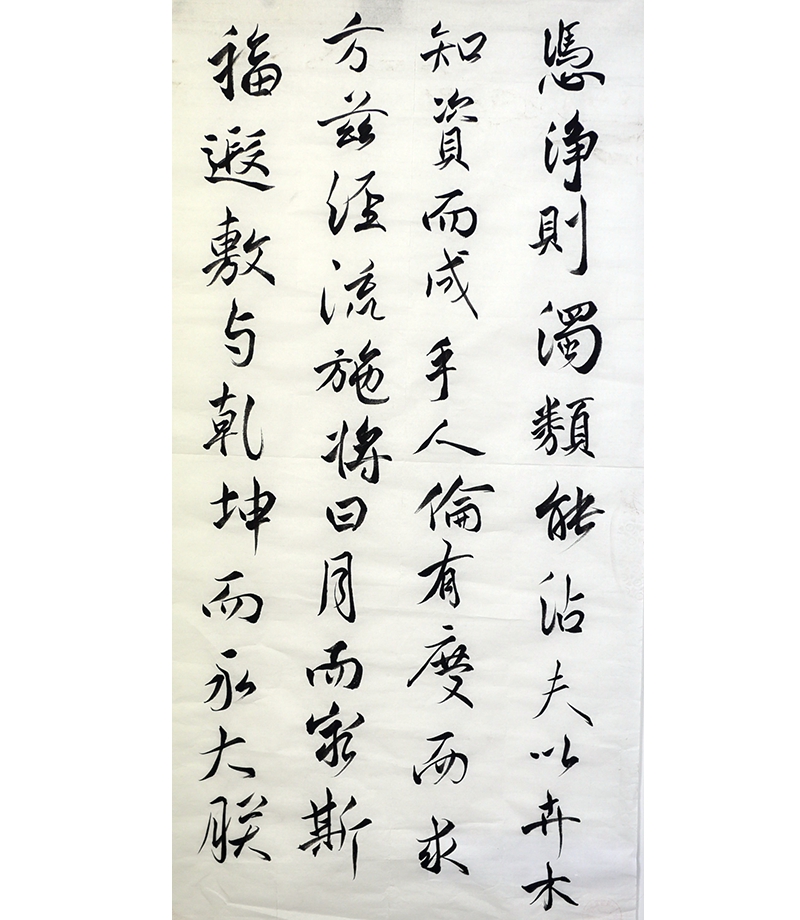 憑淨則濁類能沾夫以卉木
知資而成手人倫有慶而求
方茲經流施將日月而窮斯
福遐敷与乾坤而永大朕